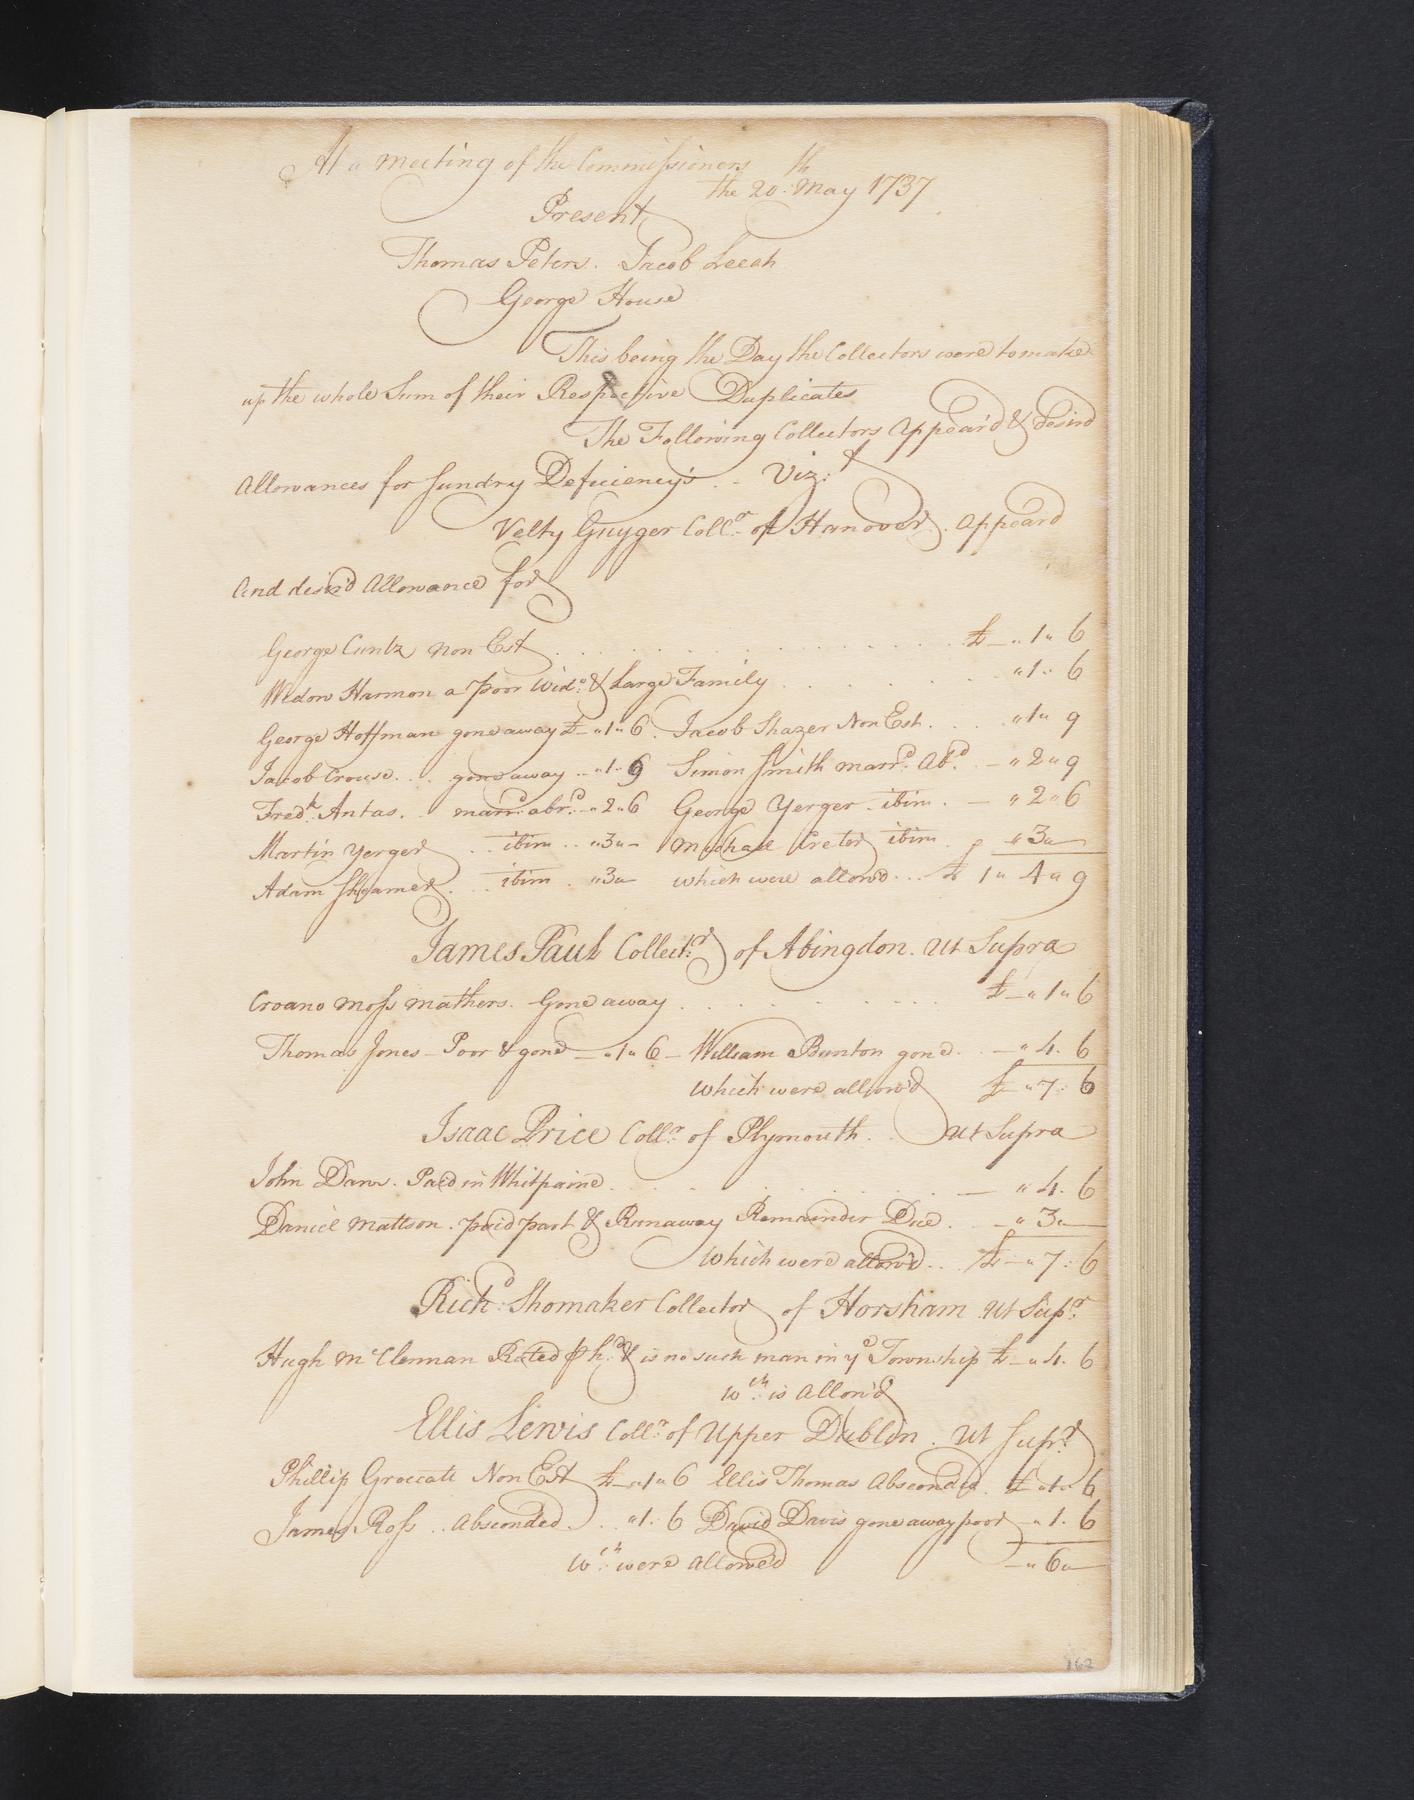 At a meeting of the Commissioners
the 20th May 1737
Present
Thomas Peters. Jacob Leech
George House
This being the Day the Collectors were to make
up the whole Sum of their Respective Duplicates
The Following Collectors Appear'd & desird
Allowances for Sundry Deficiency's .. Vizt
Velty Guyger Collr of Hanover. appeard
And desir'd Allowance for
George Cuntz non Est . . . . £ - " 1 " 6
Widow Harmon a poor Wido & Large Family . . . " 1 " 6
George Hoffman gone away £ - " 1 " 6. Jacob Shazer Non Est. . . . " 1 " 9
Jacob Crouse. . . gone away .. " 1 " 9 Simon Smith marrd Abd. - " 2 " 9
Fredk Antas. . marrd abrd - " 2 " 6 George Yerger ibim. - " 2 " 6
Martin Yerger . . ibim .. " 3 " - Michael Creter ibim. " 3 "
Adam . . . ibim . " 3 " which were allow'd . . . £ 1 " 4 " 9
James Paul Collectr of Abingdon. Ut Supra
Croano Moss Mathers. Gone away . . . £ - " 1 " 6
Thomas Jones - Poor & gone - " 1 " 6 - William Bunton gone. . - " 4 . 6
which were allow'd £ - " 7 : 6
Isaac Price Collr of Plymouth. . Ut Supra
John Danr. Paid in Whitpaine . . . - " 4 . 6
Daniel Mattson. paid part & Runaway Remainder Due. . - " 3 " -
which were allow'd . . £ - " 7 : 6
Richd Shomaker Collector of Horsham Ut Supr
Hugh McClennan Rated & is no such man in ye Township £ - " 4 . 6
wch is Allow'd
Ellis Lewis Collr of Upper Dublin. Ut Supra
Phillip Groccate Non Est £ - " 1 " 6 Ellis Thomas Absconded. £ " 1 " 6
James Ross .. Absconded. . . " 1 . 6 David Davis gone away poor - " 1 . 6
wch were Allowed - " 6 " -
162